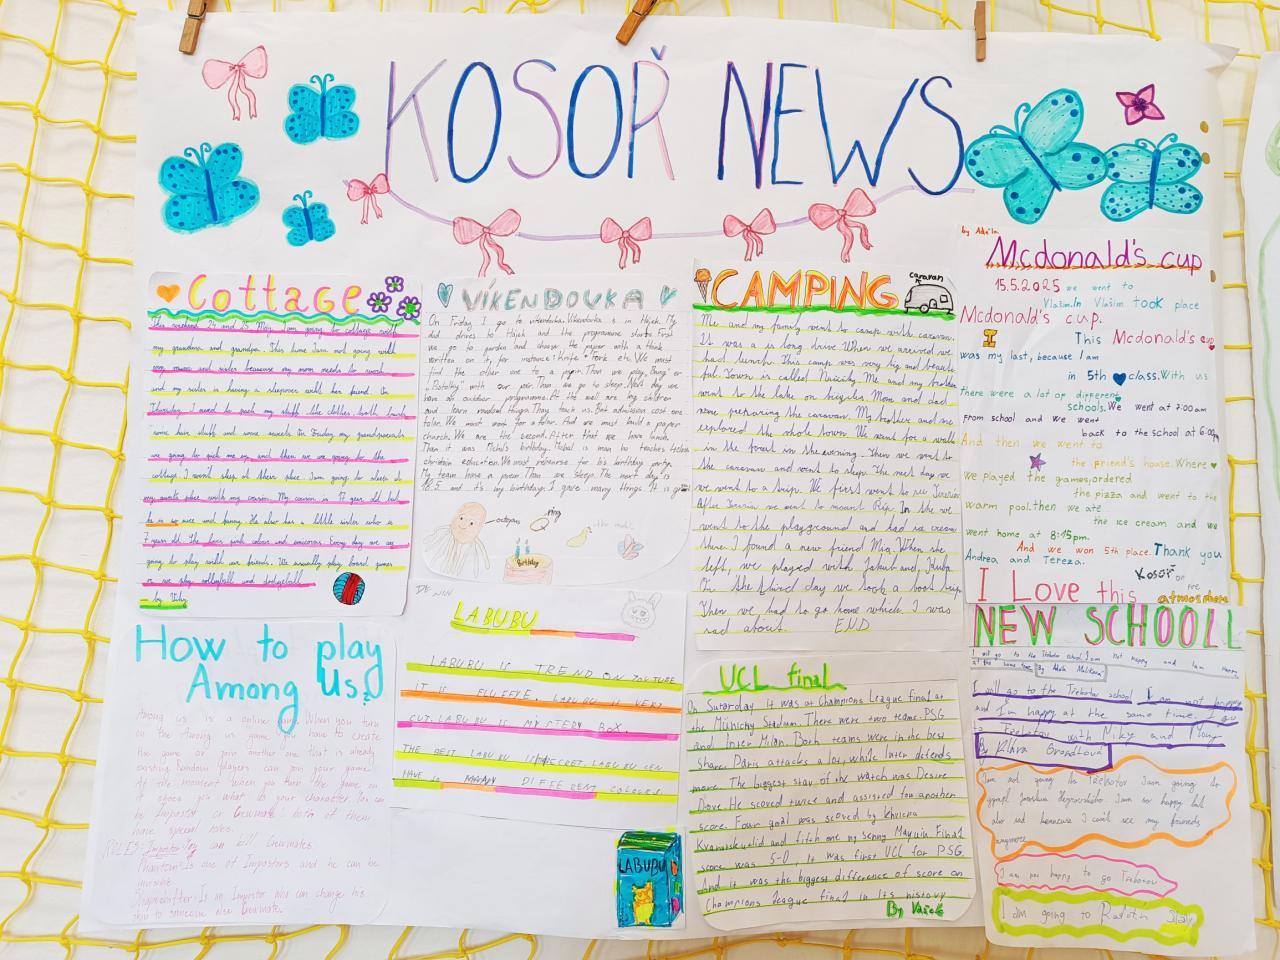 KOSOŘ NEWS
Cottage
This weekend 24 and 25 May, I am going to cottage with
my grandma and grandpa. This time I am not going with
my mom and sister because my mom needs to work
and my sister is having a sleepover with her friend. On
Thursday I need to pack my stuff like clothes, tooth brush,
some hair stuff and some sweets. On Friday my grandparents
are going to pick me up and then we are going to the
cottage. I won't sleep at their place. I am going to sleep at
my aunts place with my cousin. My cousin is 17 year old but
he is so nice and funny. He also has a little sister who is
7 years old. She loves pink colour and unicorns. Every day we are
going to play with our friends. We usually play board games
or we play volleyball and dodgeball.
by Viky
VÍKENDOVKA
On Friday I go to víkendovka. Víkendovka is in Hájek. My
dad drives to Hájek and the programme starts. First
we go to garden and choose the paper with a think
written on it, for instance: Knife + fork etc. We must
find the other one to a pair. Than we play „Bang" or
with our pair. Than we go to sleep. Next day we
have an outdoor programme. At the well are big children
and learn medical things. They teach us. But admission cost one
tolar. We must work for a tolar. And we must build a paper
church. We are the second. After that we have lunch.
Than it was Michal's birthday. Michal is man ho teaches
christain education. We must rehearse for his birthday party.
My team have a poem. Than we sleep. The next day is
18.5 and it's my birthday. I gave many things. It is
octopus
ring
Birthday
CAMPING
caravan
Me and my family went to camp with caravan.
It was a a long drive. When we arrived we
had lunch. This camp was very big and beauti
ful. Town is called Nučičky. Me and my brother
went to the lake on bicycles. Mom and dad
were preparing the caravan. My brother and me
explored the whole town. We went for a walk
in the forest in the evening. Then we went to
the caravan and went to sleep. The next day we
we went to a trip. We first went to see Terezín.
After Terezín we went to mount Říp. In the we
went to the playground and had ice cream
there. I found a new friend Mia. When she
left, we played with Jakub and Jakub.
On the third day we took a boat trip.
Then we had to go home which I was
sad about. END
by Adéla
Mcdonald's cup
15.5.2025 we went to
Vlašim. In Vlašim took place
Mcdonald's cup.
This Mcdonald's cup
was my last, because I am
in 5th class. With us
there were a lot of different
schools. We went at 7:00am
From school and we went
back to the school at 6:00pm
And then we went to
the friend's house. Where
we played the games, ordered
the pizza and went to the
warm pool. then we ate
the ice cream and we
went home at 8:15pm.
And we won 5th place. Thank you
Andrea and Tereza.
Kosoř
I Love this atmosphere
How to play
Among Us:
Among us is a online game. When you turn
on the Among in game you have to create
the game or join another one that is already
existing. Random players can join your game
At the moment when you turn the game on
it shows you what is your character. You can
be Impostor or Crewmate. both of them
have special roles.
ROLES: Impostor can kill Crewmates
Phantom: is one of Impostors and he can be
invisible
Shapeshifter: Is an Impostor who can change his
skin to someone else Crewmate.
LABUBU
LABUBU IS TREND ON YOUTUBE
IT IS FLUFFYE. LABUBU IS VERY
CUT. LABUBU IS MYSTERY BOX.
THE BEST LABUBU IS SECRET. LABUBU CEN
HAVE MANY DIFFERENT COLOURS.
LABUBU
UCL final
On Saturday it was at Champions League final at
the Munichy Stadium. There were two teams: PSG
and Inter Milan. Both teams were in the best
shape. Paris attacks a lot, while Inter defends
more. The biggest star of the match was Desire
Dove. He scored twice and assisted for another
score. Four goal was scored by Khvicha
Kvaratskvelid and fifth one by Senny Mayulu. Final
score was 5-0. It was first UCL for PSG.
And it was the biggest difference of score on
Champions league final in its history
By Vašek
NEW SCHOOLL
I will go to the Trebotov school I am not happy and I am happy
at the same time By Adéla
I will go to the Trebotov school I am not happy
and I'm happy at the same time I go
to Trebotov with Niky and
By Klára
I am not going to Trebotov I am going to
I am so happy but
also sad because I can't see my friends
anymore
I am happy to go Trebotov
I am going to Radotín